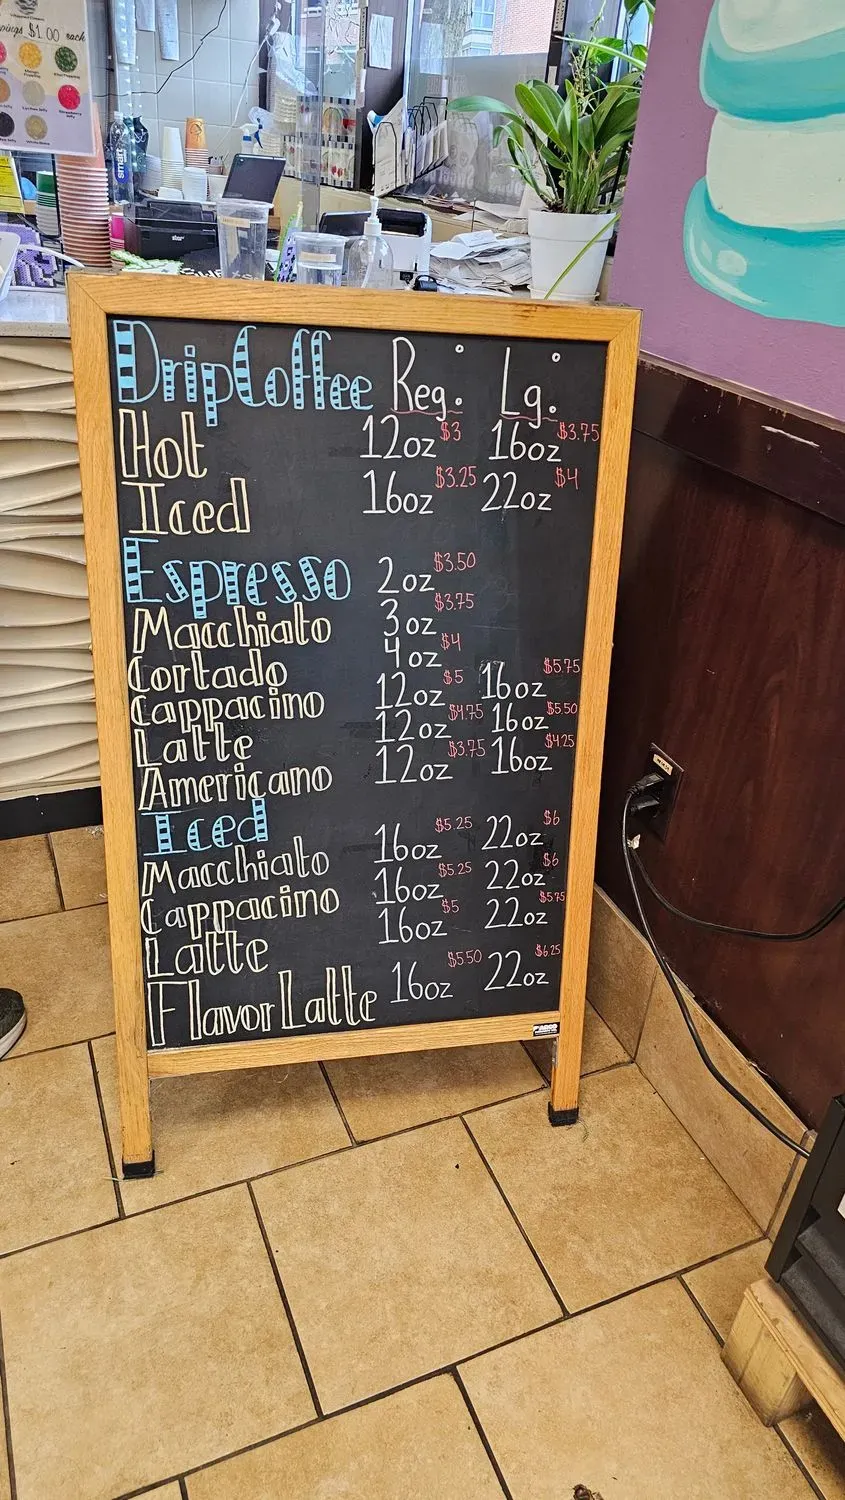 $1.00 each
smart
star
Drip Coffee Reg. Lg.
Hot 12oz $3 16oz $3.75
Iced 16oz $3.25 22oz $4
Espresso 2oz $3.50
Macchiato 3oz $3.75
Cortado 4oz $4
Cappacino 12oz $5 16oz $5.75
Latte 12oz $4.75 16oz $5.50
Americano 12oz $3.75 16oz $4.25
Iced
Macchiato 16oz $5.25 22oz $6
Cappacino 16oz $5.25 22oz $6
Latte 16oz $5 22oz $5.75
Flavor Latte 16oz $5.50 22oz $6.25